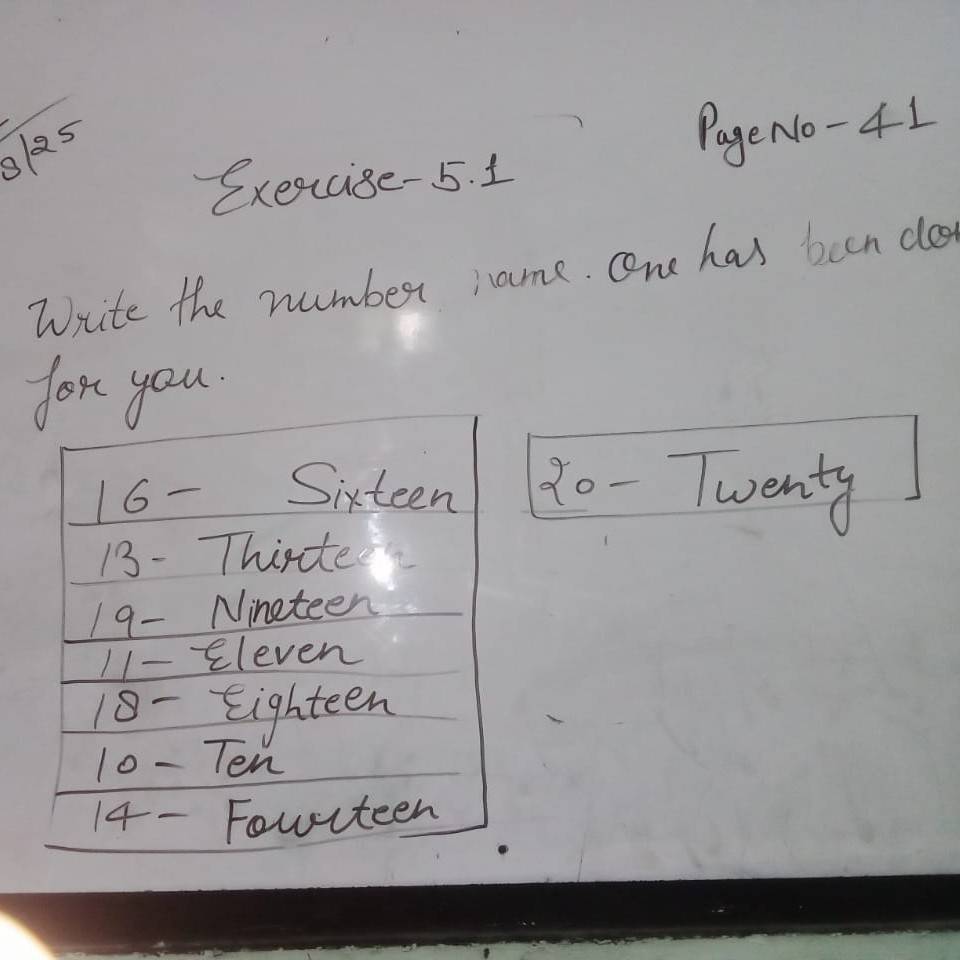 8/25
Page No - 41
Exercise - 5.1
Write the number name. One has been
for you.
16 - Sixteen
13 - Thirteen
19 - Nineteen
11 - Eleven
18 - Eighteen
10 - Ten
14 - Fourteen
20 - Twenty